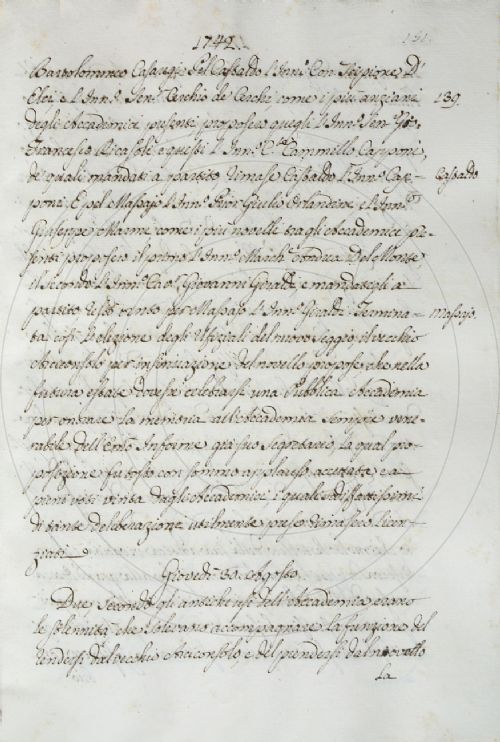 1742.
131.
Bartolommeo Casaregi. Pel Castaldo l'Inn.° Con. Scipione D'
Elci e l'Inn.° Sen.r Cerchio de' Cerchi come i più anziani
139.
degli Accademici presenti proposero quegli l'Inn.° Sen.r
Francesco Ricasoli e questi l'Inn.° Cammillo Capponi,
de' quali mandati a partito rimase Castaldo l'Inn.° Cap-
Castaldo
poni. E pel Massajo l'Inn.° Giulio Orlandini e l'Inn.°
Giuseppe Manni come i più novelli tra gli Accademici pre-
senti propose il primo l'Inn.° March. Andrea Del Monte
il secondo l'Inn.° Cav.r Giovanni Giraldi, e mandatigli a
partito restò vinto per Massajo l'Inn.° Giraldi. Termina-
Massajo.
ta così l'elezione degli Ufiziali del nuovo seggio il vecchio
Arciconsolo per insinuazione del novello propose che nella
futura estate dovesse celebrarsi una Pubblica Accademia
per onorare la memoria all'Accademia sempre vene-
rabile dell'Inferme già suo Segretario, la qual pro-
posizione fu tosto con sommo applauso accettata e a
pieni voti vinta dagli Accademici i quali sodisfattissimi
di tante deliberazioni utilmente prese rimasero licen-
ziati.
Giovedì 30. Agosto.
Due secondo gli antichi usi dell'Accademia erano
le solennità che solevano accompagnare la funzione del
rendersi dal vecchio Arciconsolo, e del prendersi dal novello
la